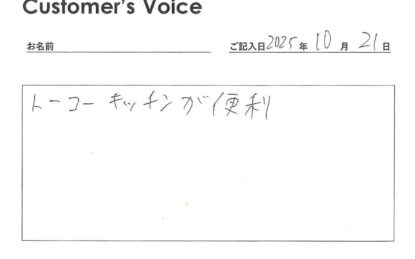 Customer's Voice
お名前 ご記入日2025年10月21日
トーコーキッチンが便利